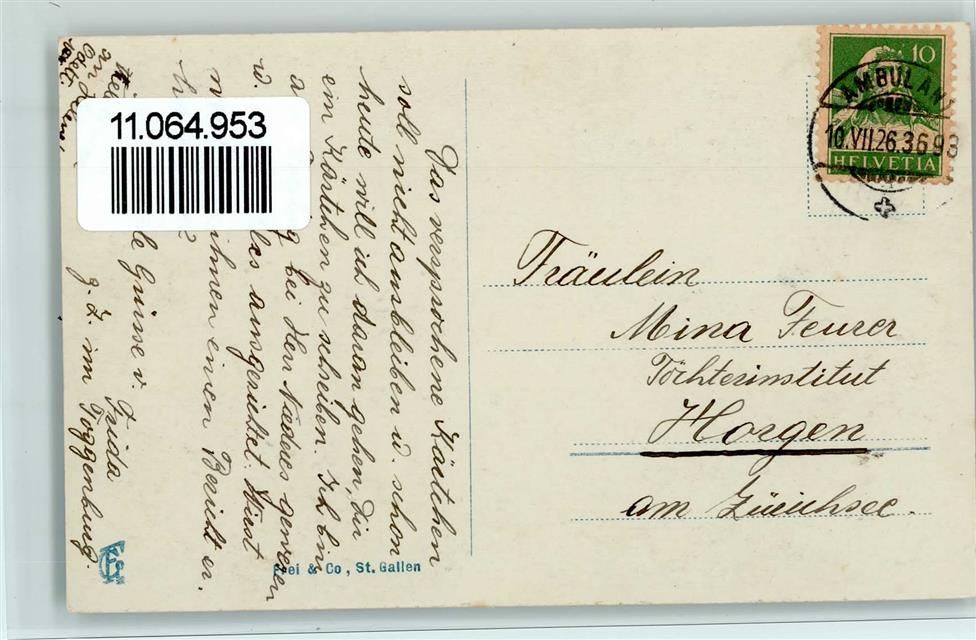 Das versprochene Kärtchen
soll nicht ausbleiben u. schon
heute will ich daran gehen, Dir
ein Kärtchen zu schreiben. Ich bin
bei Herr Niederes gewesen
u. ausgerichtet. Wirst
ihnen einen Bericht er.
Grüsse v. Frida
z. Z. im Toggenburg.
11.064.953
10
AMBULANT
10.VII.26.3698
HELVETIA
Fräulein
Mina Feurer
Töchterinstitut
Horgen
am Zürichsee.
Frei & Co, St. Gallen